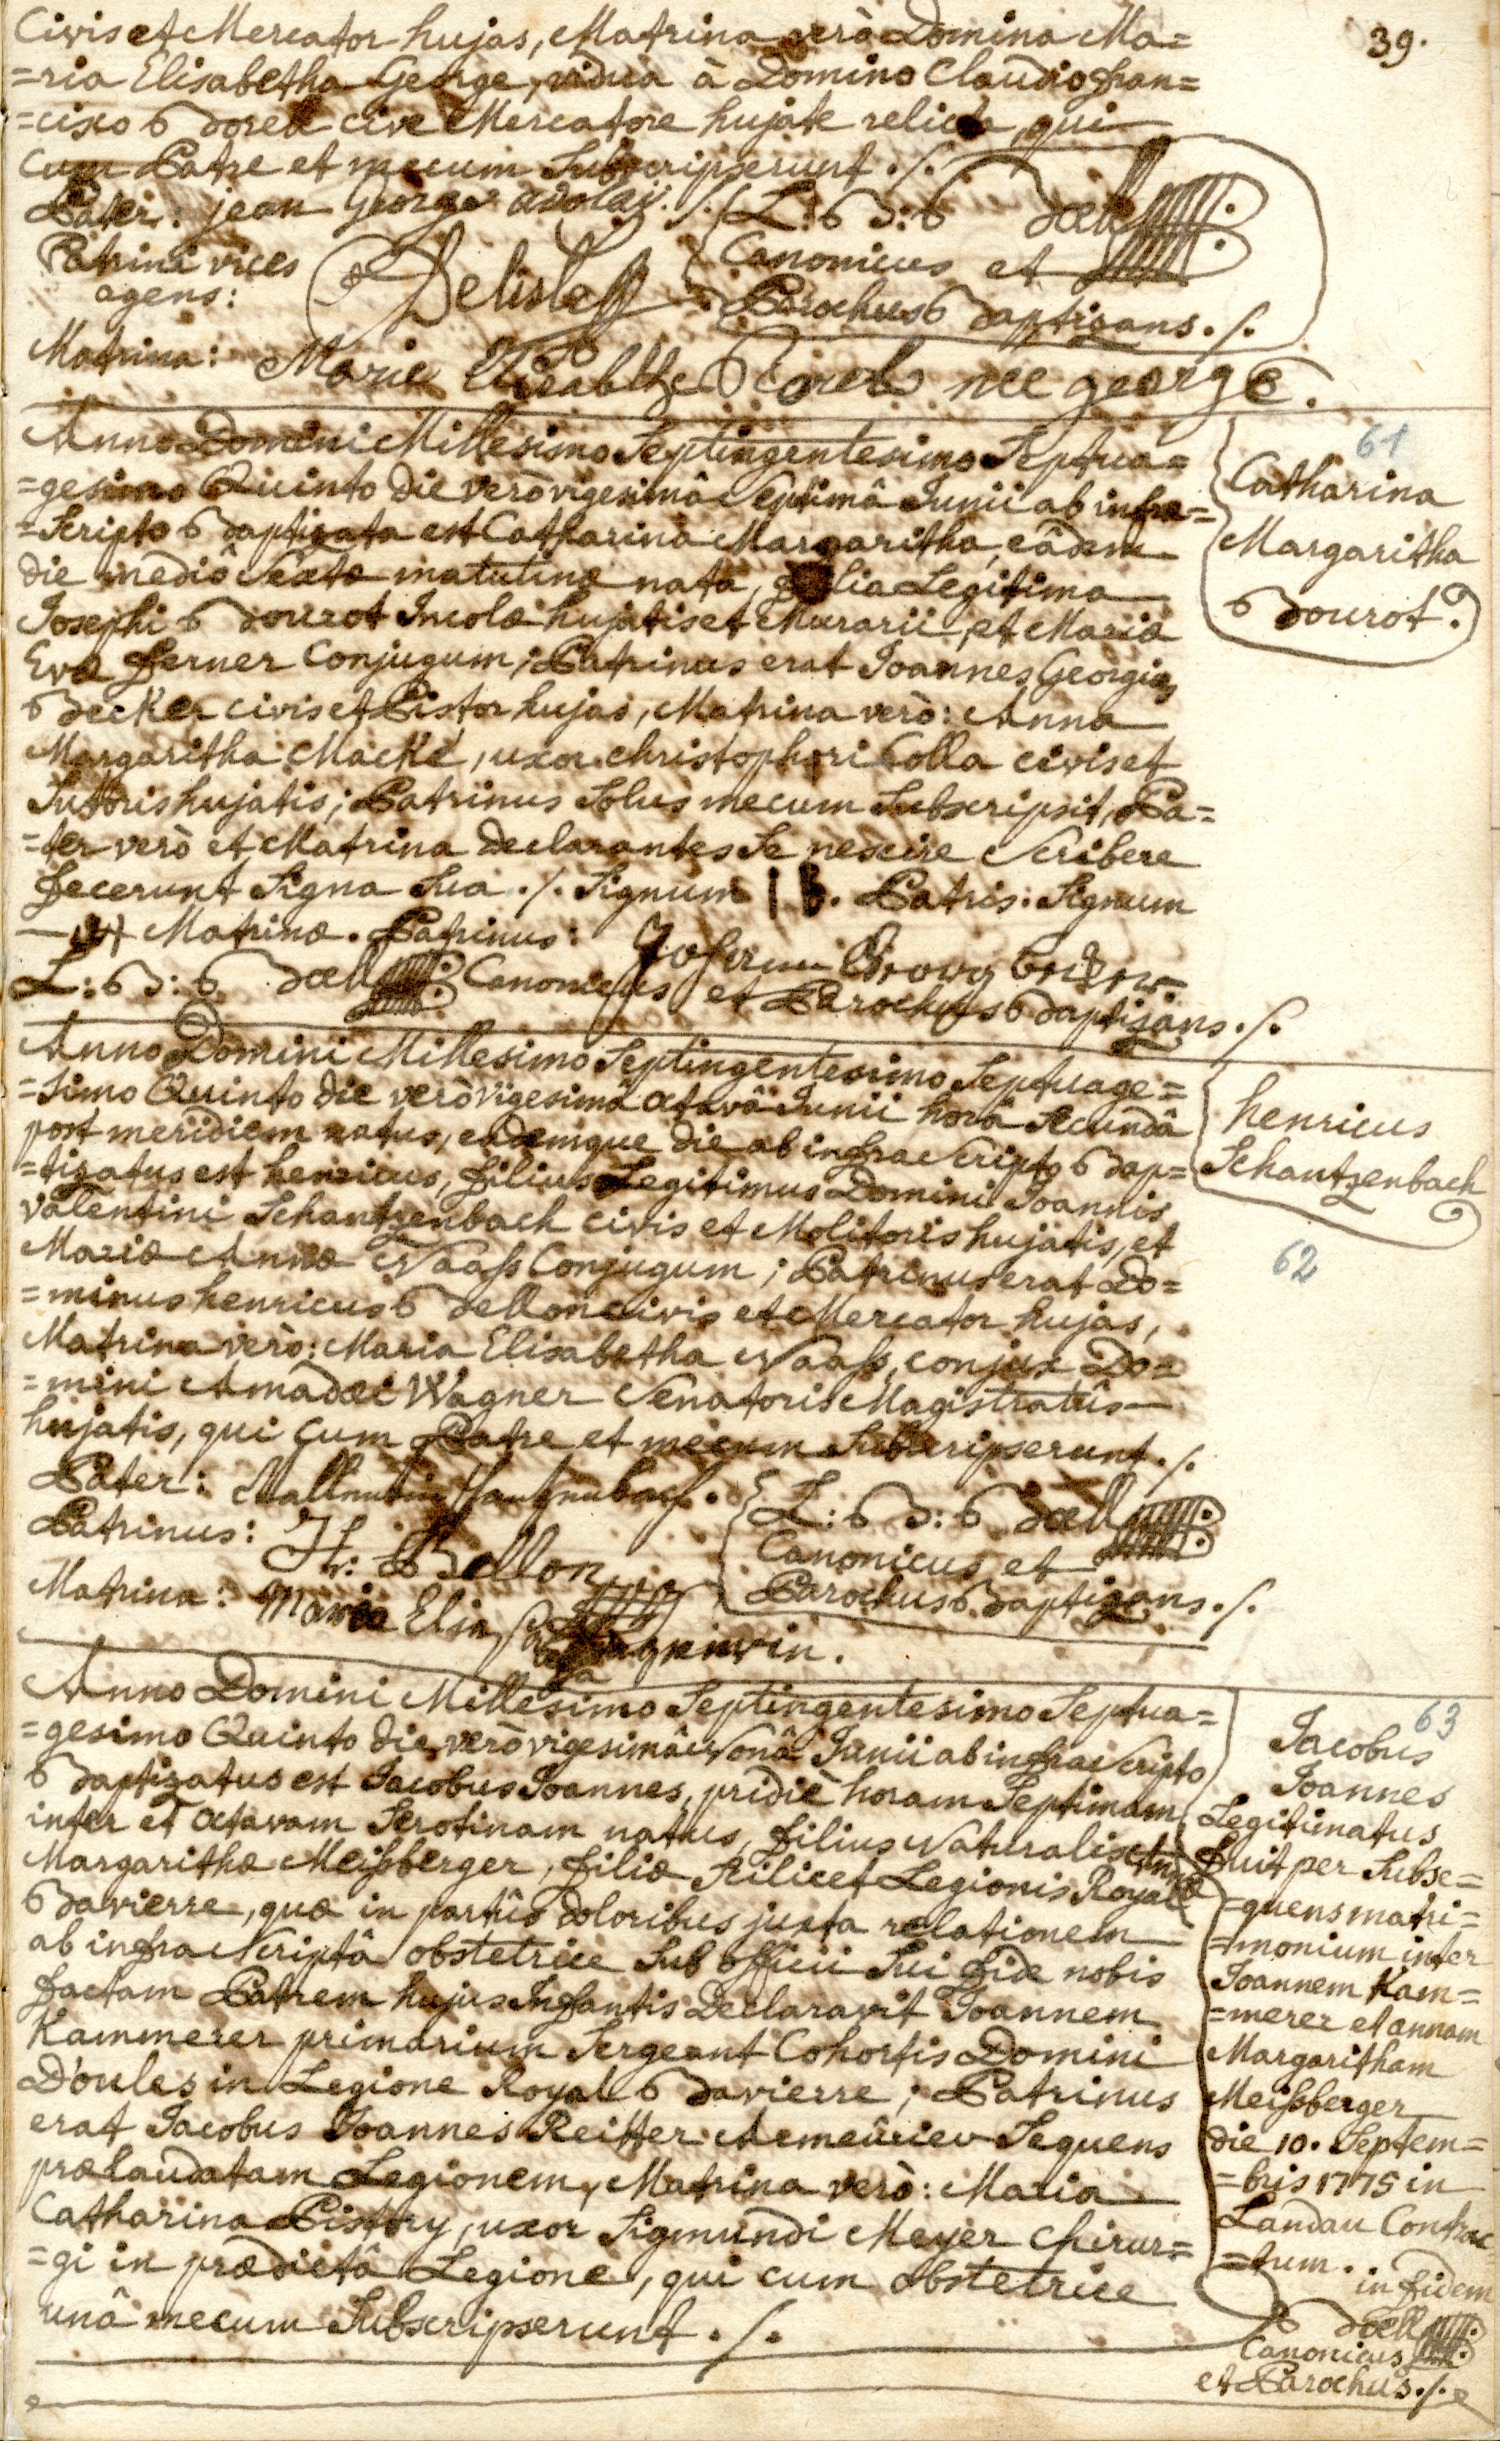 39.
Civis et Mercator hujas, Matrina verò Domina Ma=
=ria Elisabetha George, vidua à Domino Claudio fran=
=cisco Borel cive Mercatore hujate relicta, qui
cum Patre et mecum Subscripserunt ./.
Pater: jean George
Patrini vices
agens: Delisle
L: B: Bæll
Canonicus et
Parochus Baptizans ./.
Matrina: Marie Elisabethe Borel nee george.
Anno Domini Millesimo Septingentesimo Septua=
=gesimo Quinto die verò vigesimâ Septimâ Junii ab infra=
=Scripto Baptizata est Catharina Margaritha, eâdem
die mediô Sextæ matutinæ nata, filia Legitima
Josephi Bourot Incolæ hujatis et Murarii, et Mariæ
Evæ ferner Conjugum; Patrinus erat Joannes Georgius
Becker civis et Pistor hujas, Matrina verò: Anna
Margaritha Macké, uxor christophori Colla civis et
Sutoris hujatis; Patrinus Solus mecum Subscripsit, Pa=
=ter verò et Matrina declarantes Se nescire Scribere
fecerunt Signa Sua ./. Signum I B. Patris: Signum
Matrinæ. Patrinus:
L: B: Bæll Canonicus et Parochus Baptizans ./.
61
Catharina
Margaritha
Bourot.
Anno Domini Millesimo Septingentesimo Septuage=
=Simo Quinto die verò vigesimâ octavâ Junii horâ Secundâ
post meridiem natus, eâdemque die ab infra Scripto Bap=
=tizatus est henricus, filius Legitimus Domini Joannis
Valentini Schantzenbach civis et Molitoris hujatis, et
Mariæ Annæ Naass Conjugum; Patrinus erat Do=
=minus henricus Bellon civis et Mercator hujas,
Matrina verò: Maria Elisabetha Naass, conjux Do=
=mini Amadæi Wagner Senatoris Magistratûs
hujatis, qui cum Patre et mecum Subscripserunt ./.
Pater:
Patrinus: Hr: Bellon
Matrina: Maria Elis
L: B: Bæll
Canonicus et
Parochus Baptizans ./.
henricus
Schantzenbach
62
Anno Domini Millesimo Septingentesimo Septua=
=gesimo Quinto die verò vigesimâ Nonâ Junii ab infra Scripto
Baptizatus est Jacobus Joannes, pridiè horam Septimam
inter et octavam Serotinam natus, filius Naturalis
Margarithæ Meißberger, filiæ Scilicet Legionis Royale
Bavierre, quæ in partûs doloribus juxta relationem
ab infra Scriptâ obstetrice Sub officii Sui fide nobis
factam Patrem hujus Infantis Declaravit Joannem
Kammerer primarium Sergeant Cohortis Domini
D'oules in Legione Royal Bavierre; Patrinus
erat Jacobus Joannes Reitter Armeûrier Sequens
prælaudatam Legionem, Matrina verò: Maria
Catharina Pistory, uxor Sigmundi Meyer Chirur=
=gi in prædictâ Legione, qui cum obstetrice
unâ mecum Subscripserunt ./.
63
Jacobus
Joannes
Legitimatus
fuit per Subse=
=quens matri=
=monium inter
Joannem Kam=
=merer et annam
Margaritham
Meißberger
die 10. Septem=
=bris 1775 in
Landau Contrac
=tum.
in fidem
Bæll
Canonicus
et Parochus ./.